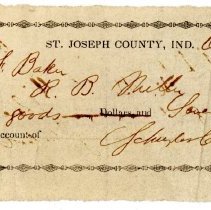 ST. JOSEPH COUNTY, IND.
Baker
R. B. Miller
goods Dollars and
account of Schuyler C